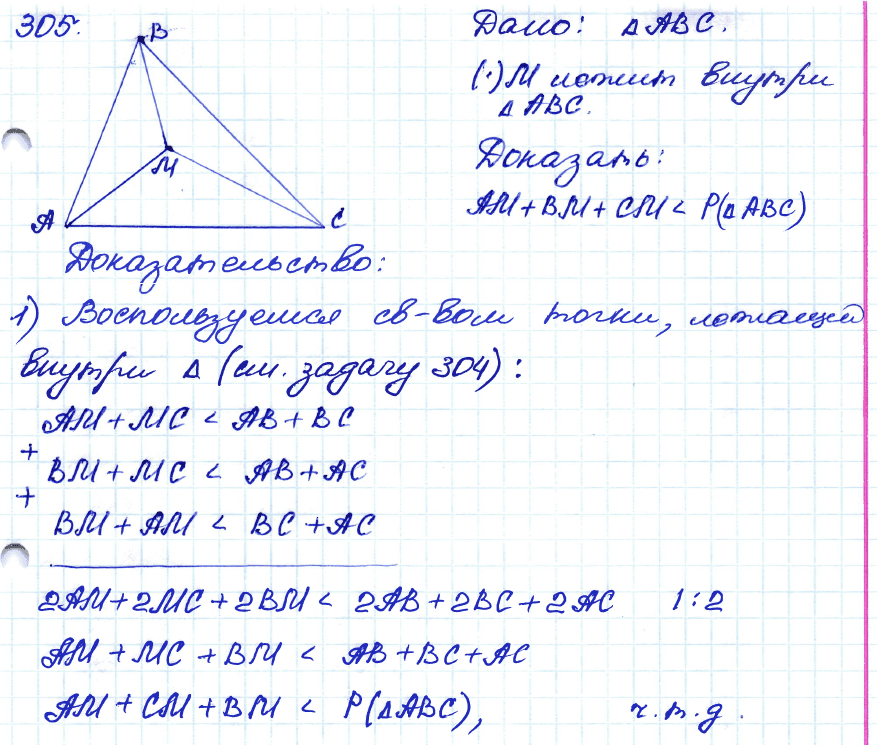 305.
B
M
A
C
Дано: △ABC.
(·)M лежит внутри
△ABC.
Доказать:
AM+BM+CM < P(△ABC)
Доказательство:
1) Воспользуемся св-вом точки, лежащей
внутри △ (см. задачу 304):
AM+MC < AB+BC
+
BM+MC < AB+AC
+
BM+AM < BC+AC
2AM+2MC+2BM < 2AB+2BC+2AC |:2
AM+MC+BM < AB+BC+AC
AM+CM+BM < P(△ABC), ч.т.д.